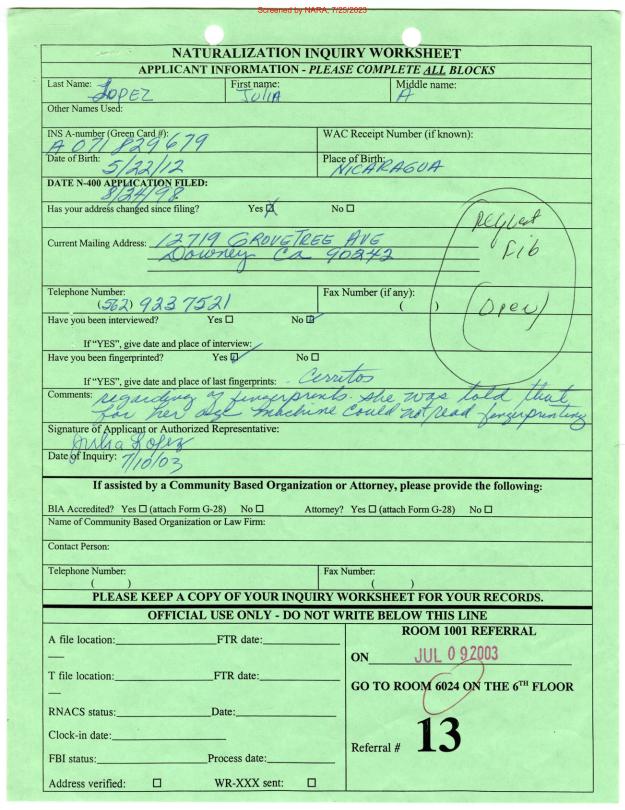 Screened by NARA, 7/25/2023
NATURALIZATION INQUIRY WORKSHEET
APPLICANT INFORMATION - PLEASE COMPLETE ALL BLOCKS
Last Name: LOPEZ First name: JULIA Middle name: A
Other Names Used:
INS A-number (Green Card #): A 071 829679 WAC Receipt Number (if known):
Date of Birth: 5/22/12 Place of Birth: NICARAGUA
DATE N-400 APPLICATION FILED: 8/24/98
Has your address changed since filing? Yes ☒ No ☐
Request
Fib
(Open)
Current Mailing Address: 12719 GROVETREE AVE
Downey Ca 90242
Telephone Number: (562) 923 7521 Fax Number (if any): ( )
Have you been interviewed? Yes ☐ No ☑
If "YES", give date and place of interview:
Have you been fingerprinted? Yes ☑ No ☐
If "YES", give date and place of last fingerprints: Cerritos
Comments: regarding of fingerprints. she was told that
for her age machine could not read fingerprinting
Signature of Applicant or Authorized Representative:
Julia Lopez
Date of Inquiry: 7/10/03
If assisted by a Community Based Organization or Attorney, please provide the following:
BIA Accredited? Yes ☐ (attach Form G-28) No ☐ Attorney? Yes ☐ (attach Form G-28) No ☐
Name of Community Based Organization or Law Firm:
Contact Person:
Telephone Number: ( ) Fax Number: ( )
PLEASE KEEP A COPY OF YOUR INQUIRY WORKSHEET FOR YOUR RECORDS.
OFFICIAL USE ONLY - DO NOT WRITE BELOW THIS LINE
A file location: FTR date:
T file location: FTR date:
RNACS status: Date:
Clock-in date:
FBI status: Process date:
Address verified: ☐ WR-XXX sent: ☐
ROOM 1001 REFERRAL
ON JUL 09 2003
GO TO ROOM 6024 ON THE 6TH FLOOR
Referral # 13